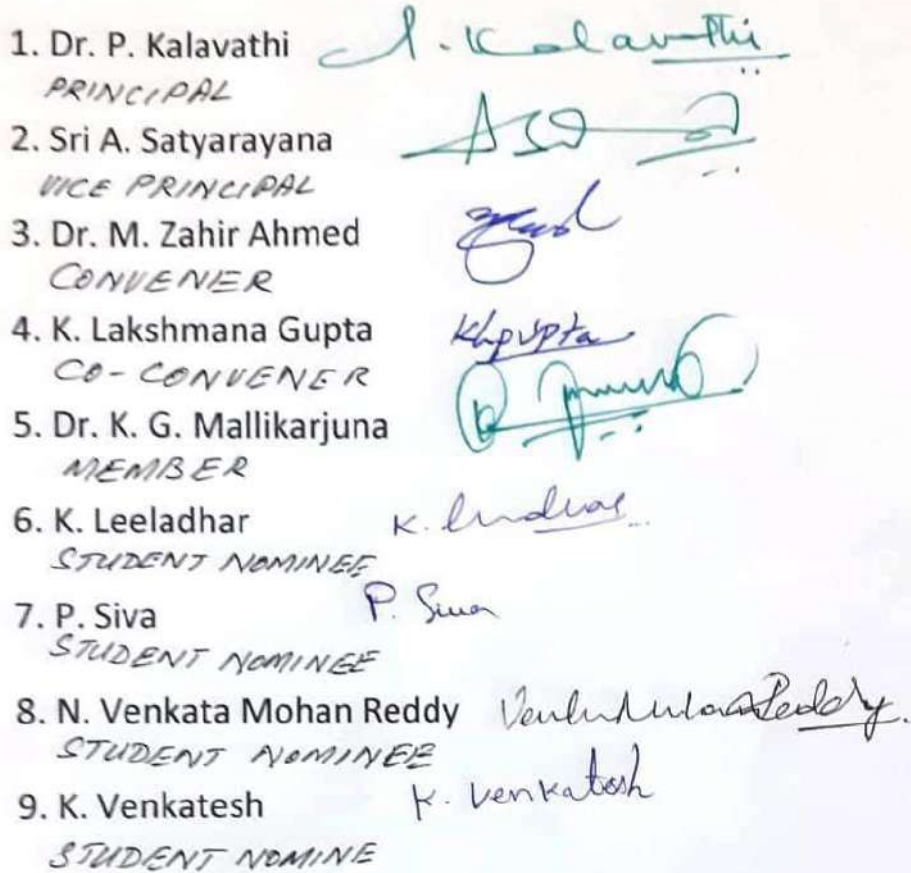 1. Dr. P. Kalavathi P. Kalavathi
PRINCIPAL
2. Sri A. Satyarayana
VICE PRINCIPAL
3. Dr. M. Zahir Ahmed
CONVENER
4. K. Lakshmana Gupta Klgupta
CO-CONVENER
5. Dr. K. G. Mallikarjuna
MEMBER
6. K. Leeladhar K.
STUDENT NOMINEE
7. P. Siva P. Siva
STUDENT NOMINEE
8. N. Venkata Mohan Reddy Reddy.
STUDENT NOMINEE
9. K. Venkatesh K. Venkatesh
STUDENT NOMINE